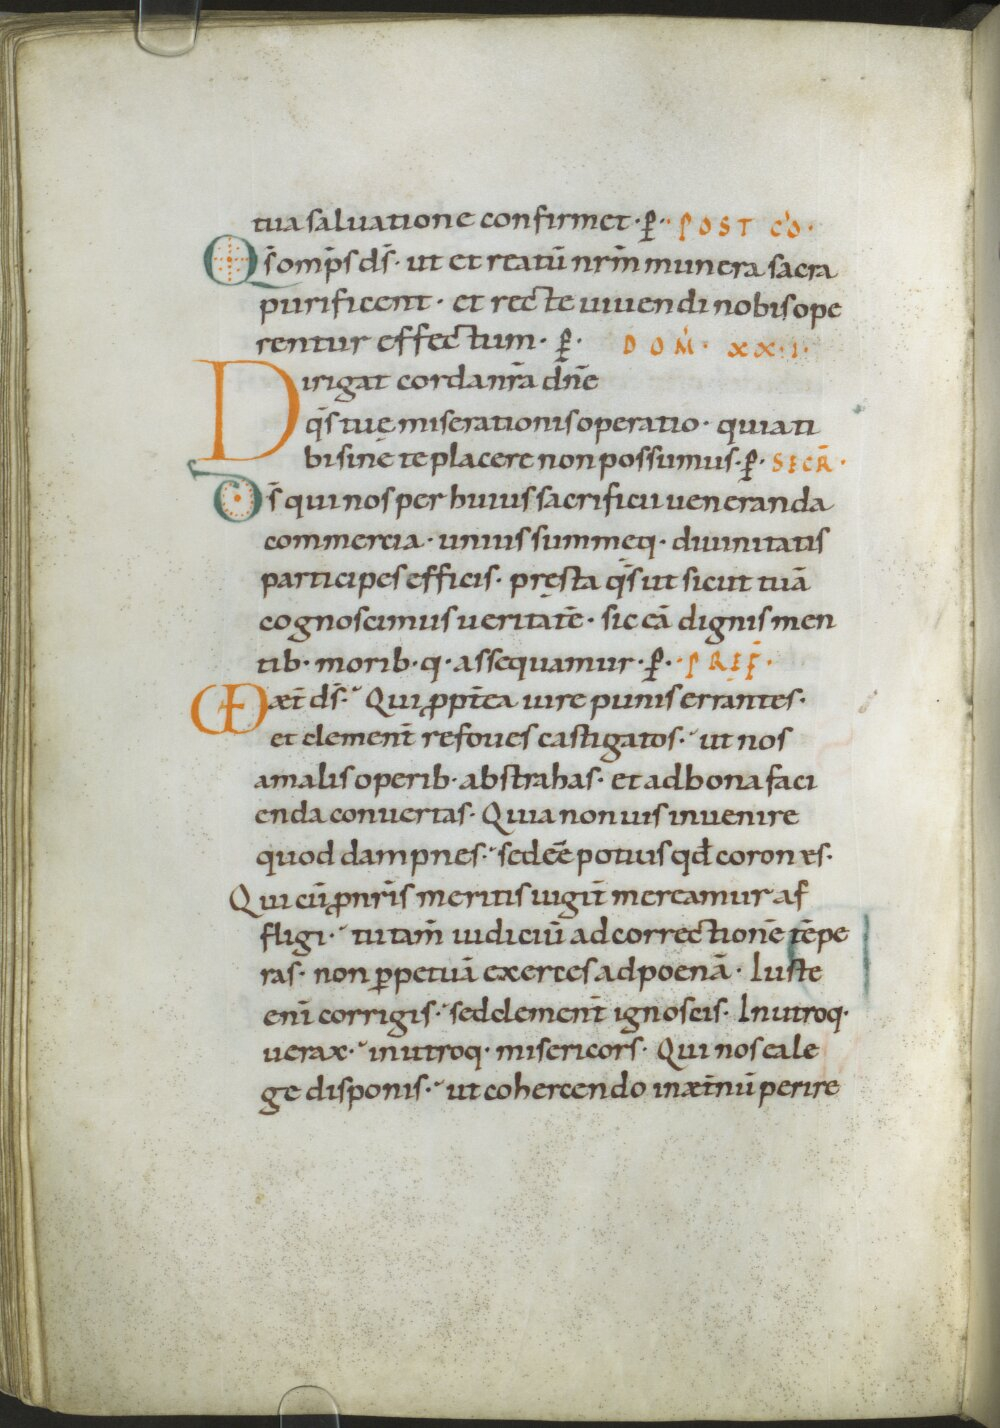 tua saluatione confirmet · p̄ · POST CŌ ·
Q̄s omp̄s ds̄ · ut et reatū nrm̄ munera sacra
purificent · et recte uiuendi nobis ope
rentur effectum · p̄ · DOM̄ · XX · I ·
Dirigat corda nr̄a dn̄e
q̄s tuę miserationis operatio · quia ti
bi sine te placere non possumus · p̄ · SECR̄ ·
Ds̄ qui nos per huius sacrificii ueneranda
commercia · unius summeq · diuinitatis
participes efficis · pręsta q̄s ut sicut tuā
cognoscimus ueritatē · sic eā dignis men
tib · morib · q · assequamur · p̄ · PREF̄ ·
VD æt̄ ds̄ · Qui ꝓpt̄ea iure punis errantes ·
et clement̄ refoues castigatos · ut nos
a malis operib · abstrahas · et ad bona faci
enda conuertas · Quia non uis inuenire
quod dampnes · sed eē potius qd̄ corones ·
Qui cū ꝓ nr̄is meritis iugit̄ mereamur af
fligi · tu tam̄ iudiciū ad correctionē tēpe
ras · non ꝑpetuā exerces ad poenā · Iuste
enī corrigis · sed clement̄ ignoscis · In utroq ·
uerax · in utroq · misericors · Qui nos ea le
ge disponis · ut cohercendo in æt̄nū perire